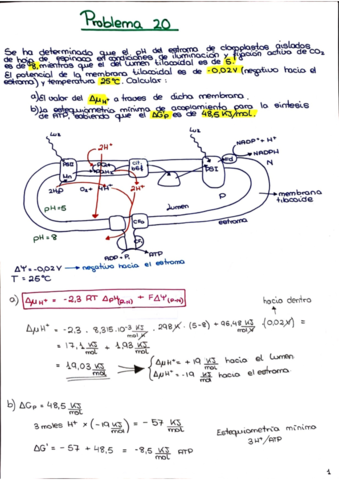 Problema 20
Se ha determinado que el pH del estroma de cloroplastos aislados
de hoja de espinaca en condiciones de iluminación y fijación activa de CO2
es de 8, mientras que el del lumen tilacoidal es de 5.
El potencial de la membrana tilacoidal es de -0,02V (negativo hacia el
estroma) y temperatura 25°C. Calcular:
a) El valor del ΔμH+ a traves de dicha membrana.
b) la estequiometría mínima de acoplamiento para la síntesis
de ATP, sabiendo que el ΔGp es de 48,5 KJ/mol.
2H+
NADP+ + H+
NADPH
N
PSI
P
membrana
tilacoide
2H+
O2 +
lumen
pH=5
estroma
pH=8
CF0
ADP + Pi
ATP
ΔΨ = -0,02V → negativo hacia el estroma
T = 25°C
a) ΔμH+ = -2,3 RT ΔpH(p-n) + FΔΨ(p-n)
hacia dentro
ΔμH+ = -2,3 · 8,315·10-3 KJ/mol·K · 298K · (5-8) + 96,48 KJ/mol·V (0,02V) =
= 17,1 KJ/mol + 1,93 KJ/mol =
= 19,03 KJ/mol → ΔμH+ = +19 KJ/mol hacia el lumen
ΔμH+ = -19 KJ/mol hacia el estroma
b) ΔGp = 48,5 KJ/mol
3 moles H+ x (-19 KJ/mol) = -57 KJ/mol
ΔG' = -57 + 48,5 = -8,5 KJ/mol ATP
Estequiometría mínima
3H+/ATP
1